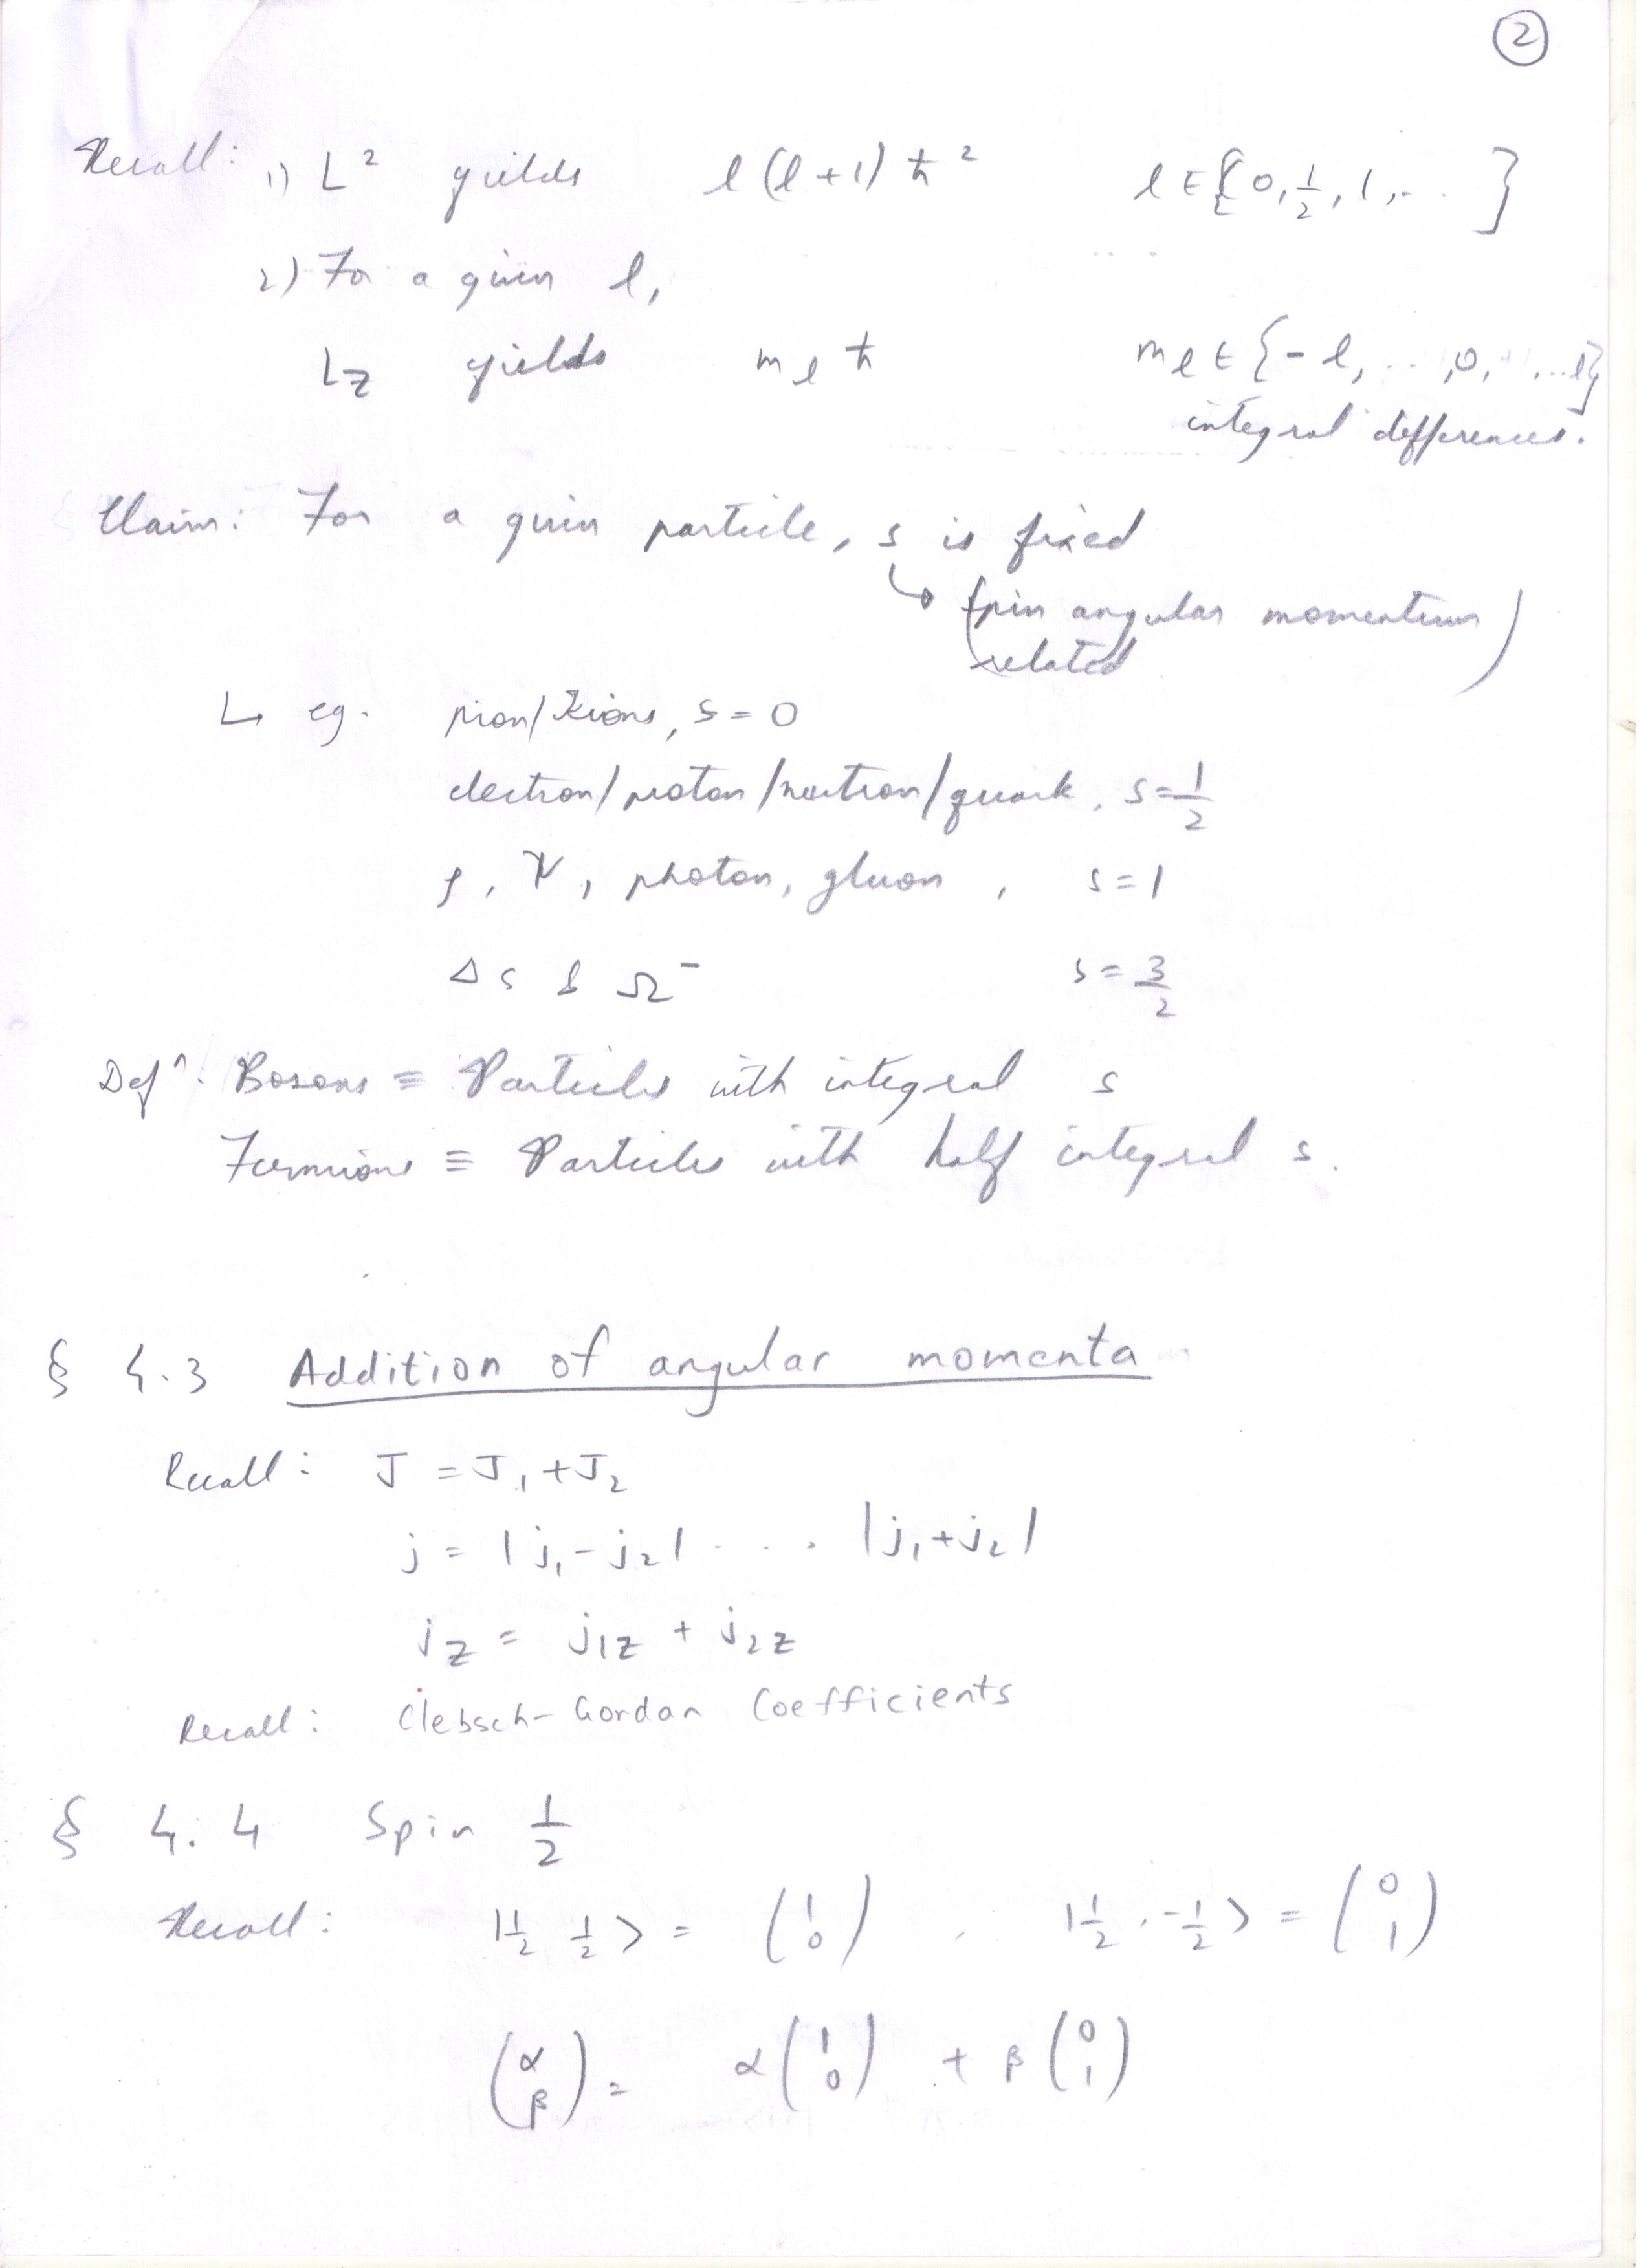 2
Recall: 1) L² yields l(l+1)ħ² l ∈ {0, 1/2, 1, ... }
2) For a given l,
Lz yields m_l ħ m_l ∈ {-l, ..., 0, ..., l}
integral differences.
Claim: For a given particle, s is fixed
↳ (spin angular momentum
related)
↳ eg. pion/Kions, s = 0
electron/proton/neutron/quark, s = 1/2
ρ, Ψ, photon, gluon, s = 1
Δs & Ω⁻ s = 3/2
Defⁿ: Bosons ≡ Particles with integral s
Fermions ≡ Particles with half integral s.
§ 4.3 Addition of angular momenta
Recall: J = J₁ + J₂
j = |j₁ - j₂| .... |j₁ + j₂|
j_z = j_1z + j_2z
Recall: Clebsch-Gordan Coefficients
§ 4.4 Spin 1/2
Recall: |1/2 1/2> = (1 0), |1/2, -1/2> = (0 1)
(α β) = α(1 0) + β(0 1)